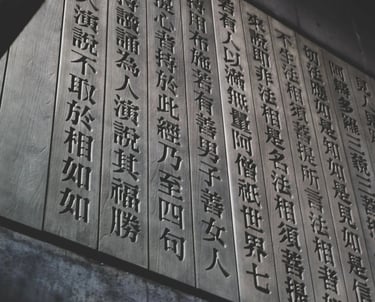 阿耨多羅三藐三菩
切法應如是知如是見如是信
不生法相須菩提所言法相者
來說即非法相是名法相須菩提
若有人以滿無量阿僧祇世界七
用布施若有善男子善女人
心者持於此經乃至四句
持讀誦為人演說其福勝
人演說不取於相如如